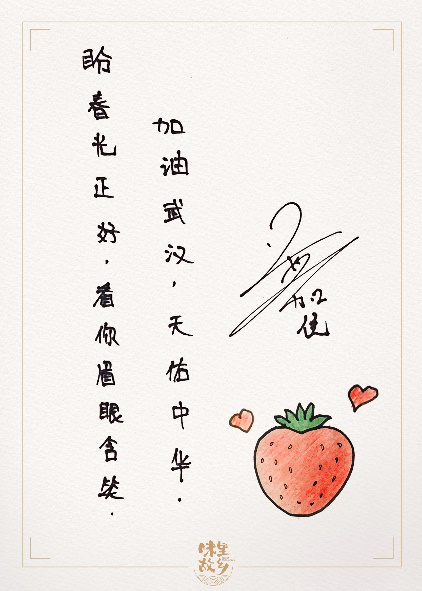 盼春光正好，看你眉眼含笑.
加油武汉，天佑中华.
加恒
味里
故乡